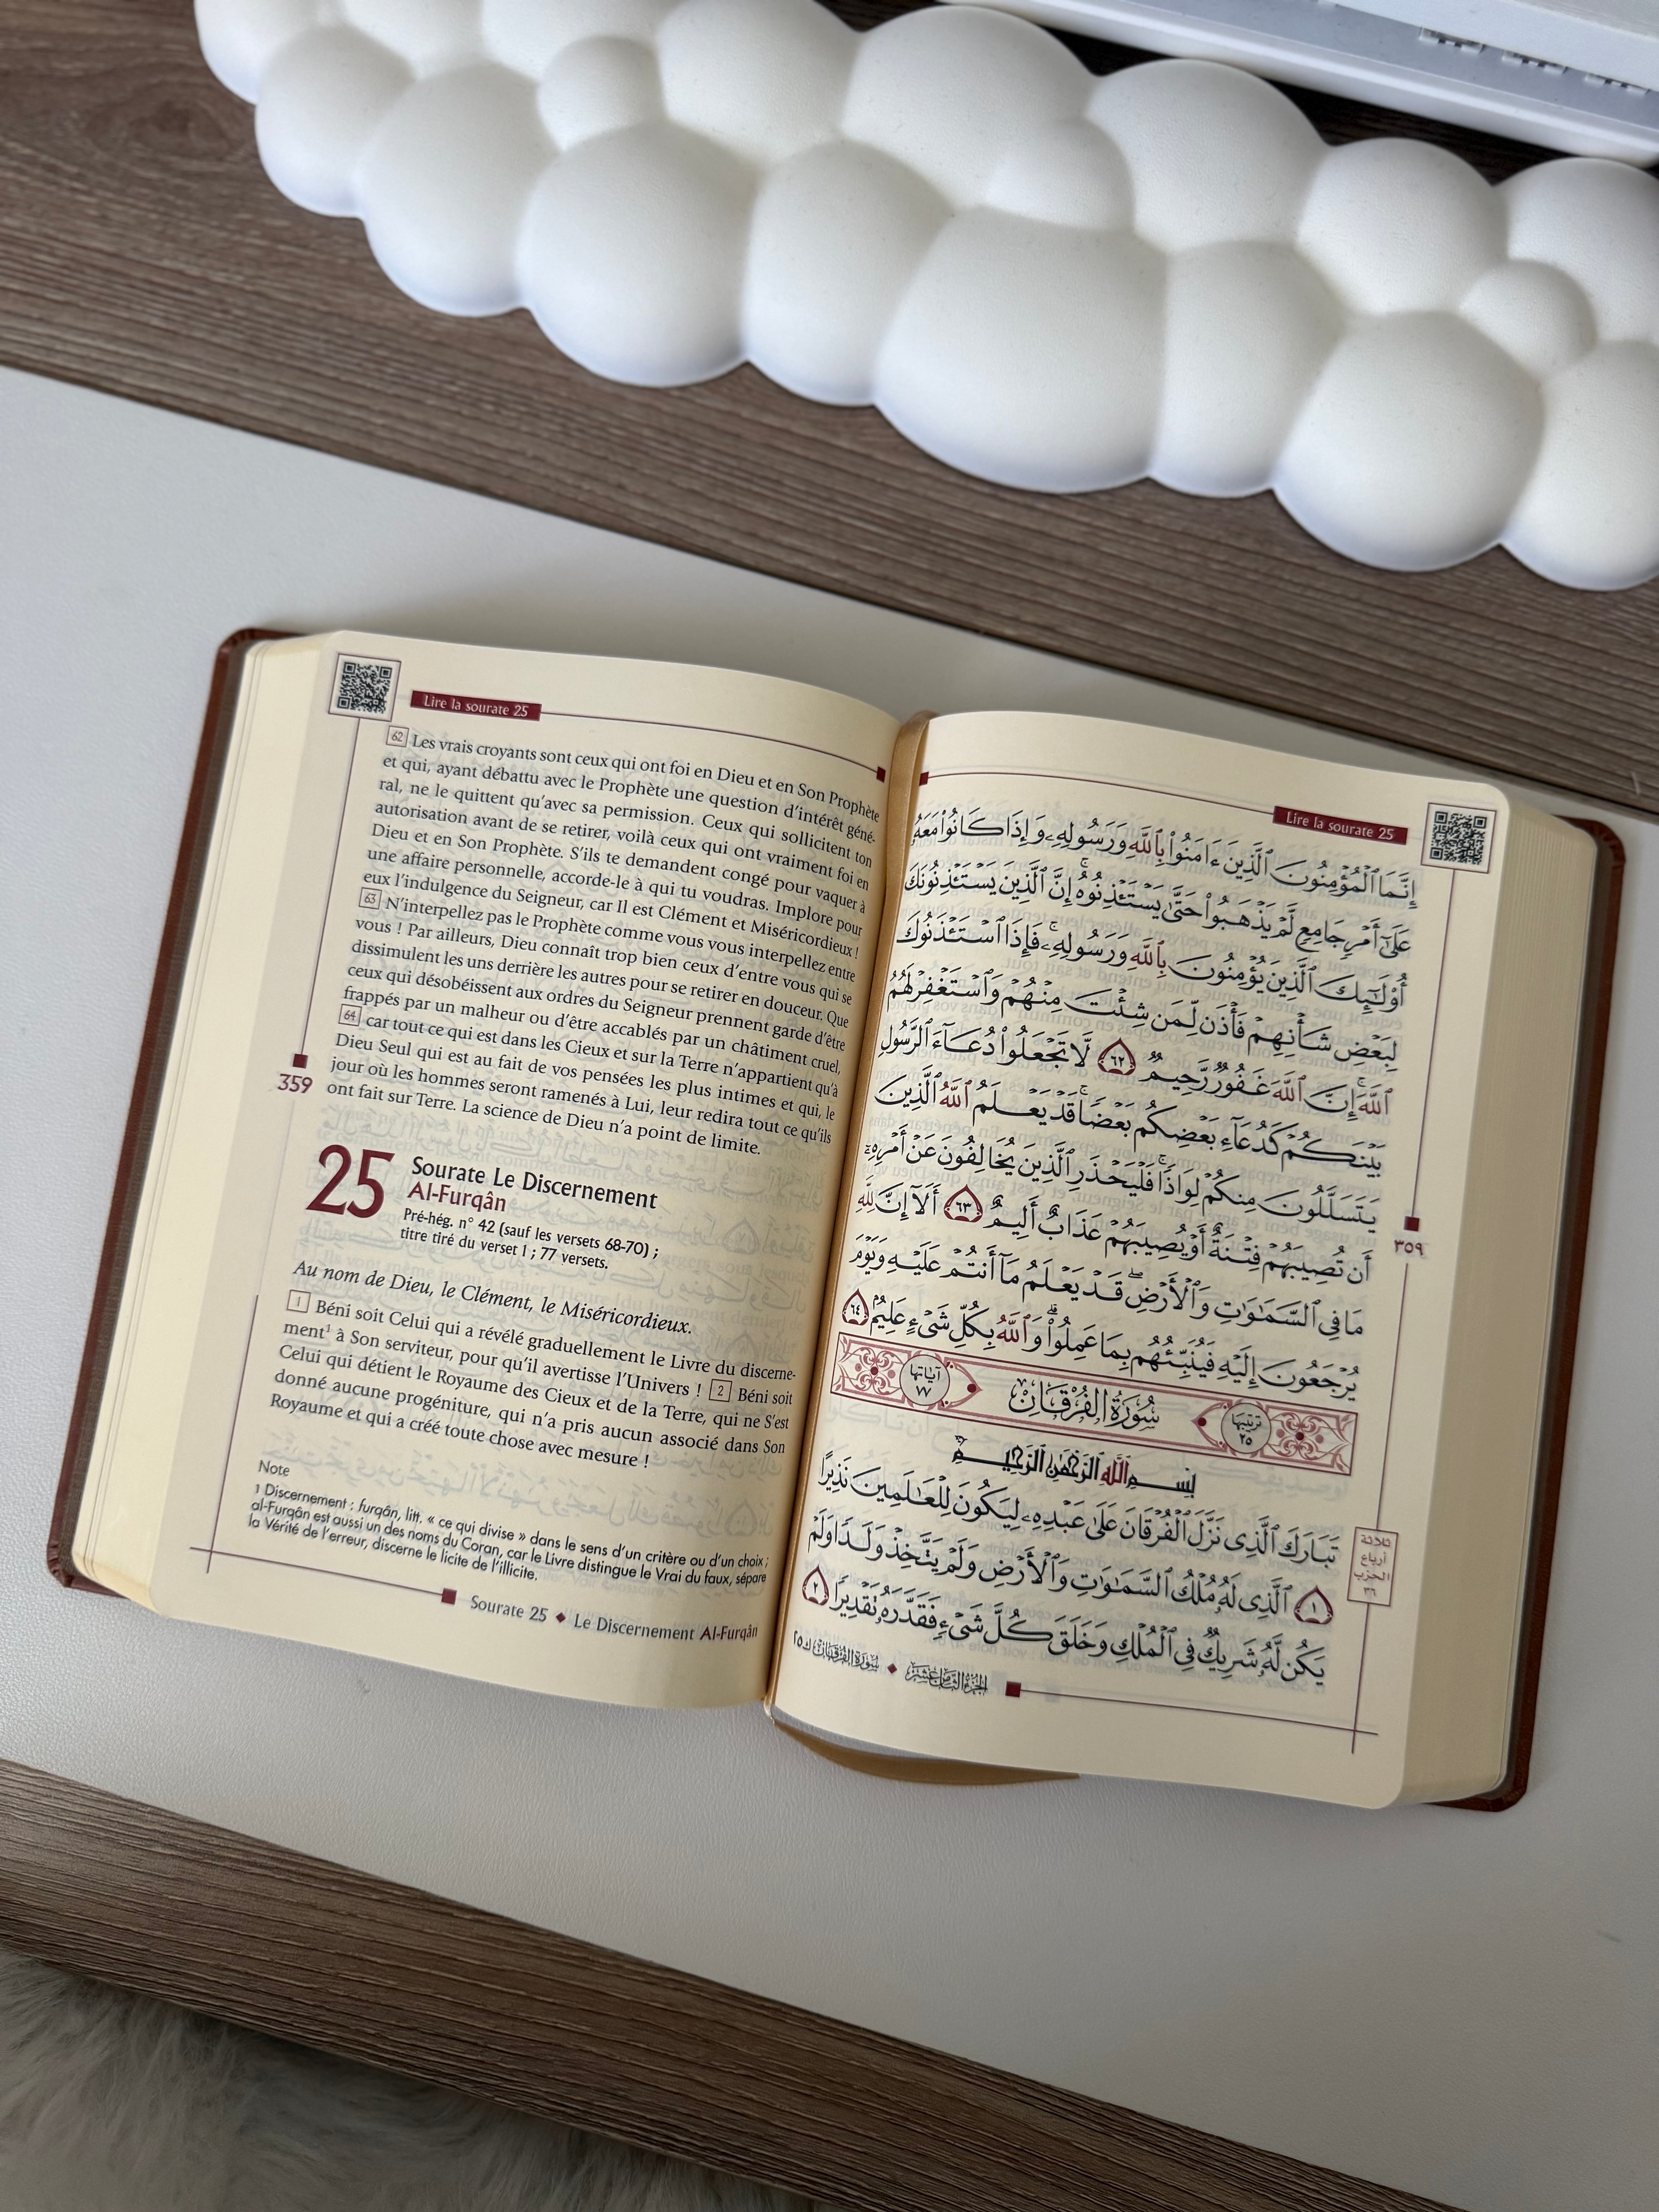 Lire la sourate 25
62 Les vrais croyants sont ceux qui ont foi en Dieu et en Son Prophète
et qui, ayant débattu avec le Prophète une question d'intérêt géné-
ral, ne le quittent qu'avec sa permission. Ceux qui sollicitent ton
autorisation avant de se retirer, voilà ceux qui ont vraiment foi en
Dieu et en Son Prophète. S'ils te demandent congé pour vaquer à
une affaire personnelle, accorde-le à qui tu voudras. Implore pour
eux l'indulgence du Seigneur, car Il est Clément et Miséricordieux !
63 N'interpellez pas le Prophète comme vous vous interpellez entre
vous ! Par ailleurs, Dieu connaît trop bien ceux d'entre vous qui se
dissimulent les uns derrière les autres pour se retirer en douceur. Que
ceux qui désobéissent aux ordres du Seigneur prennent garde d'être
frappés par un malheur ou d'être accablés par un châtiment cruel,
64 car tout ce qui est dans les Cieux et sur la Terre n'appartient qu'à
Dieu Seul qui est au fait de vos pensées les plus intimes et qui, le
jour où les hommes seront ramenés à Lui, leur redira tout ce qu'ils
ont fait sur Terre. La science de Dieu n'a point de limite.
359
25
Sourate Le Discernement
Al-Furqân
Pré-hég. n° 42 (sauf les versets 68-70) ;
titre tiré du verset 1 ; 77 versets.
Au nom de Dieu, le Clément, le Miséricordieux.
1 Béni soit Celui qui a révélé graduellement le Livre du discerne-
ment¹ à Son serviteur, pour qu'il avertisse l'Univers ! 2 Béni soit
Celui qui détient le Royaume des Cieux et de la Terre, qui ne S'est
donné aucune progéniture, qui n'a pris aucun associé dans Son
Royaume et qui a créé toute chose avec mesure !
Note
1 Discernement ; furqân, litt. « ce qui divise » dans le sens d'un critère ou d'un choix ;
al-Furqân est aussi un des noms du Coran, car le Livre distingue le Vrai du faux, sépare
la Vérité de l'erreur, discerne le licite de l'illicite.
Sourate 25 ◆ Le Discernement Al-Furqân
Lire la sourate 25
إِنَّمَا ٱلْمُؤْمِنُونَ ٱلَّذِينَ ءَامَنُوا۟ بِٱللَّهِ وَرَسُولِهِۦ وَإِذَا كَانُوا۟ مَعَهُۥ
عَلَىٰٓ أَمْرٍ جَامِعٍ لَّمْ يَذْهَبُوا۟ حَتَّىٰ يَسْتَـْٔذِنُوهُ ۚ إِنَّ ٱلَّذِينَ يَسْتَـْٔذِنُونَكَ
أُو۟لَـٰٓئِكَ ٱلَّذِينَ يُؤْمِنُونَ بِٱللَّهِ وَرَسُولِهِۦ ۚ فَإِذَا ٱسْتَـْٔذَنُوكَ
لِبَعْضِ شَأْنِهِمْ فَأْذَن لِّمَن شِئْتَ مِنْهُمْ وَٱسْتَغْفِرْ لَهُمُ
ٱللَّهَ ۚ إِنَّ ٱللَّهَ غَفُورٌ رَّحِيمٌ ٦٢ لَّا تَجْعَلُوا۟ دُعَآءَ ٱلرَّسُولِ
بَيْنَكُمْ كَدُعَآءِ بَعْضِكُم بَعْضًا ۚ قَدْ يَعْلَمُ ٱللَّهُ ٱلَّذِينَ
يَتَسَلَّلُونَ مِنكُمْ لِوَاذًا ۚ فَلْيَحْذَرِ ٱلَّذِينَ يُخَالِفُونَ عَنْ أَمْرِهِۦٓ
أَن تُصِيبَهُمْ فِتْنَةٌ أَوْ يُصِيبَهُمْ عَذَابٌ أَلِيمٌ ٦٣ أَلَآ إِنَّ لِلَّهِ
مَا فِى ٱلسَّمَـٰوَٰتِ وَٱلْأَرْضِ ۖ قَدْ يَعْلَمُ مَآ أَنتُمْ عَلَيْهِ وَيَوْمَ
يُرْجَعُونَ إِلَيْهِ فَيُنَبِّئُهُم بِمَا عَمِلُوا۟ ۗ وَٱللَّهُ بِكُلِّ شَىْءٍ عَلِيمٌۢ ٦٤
ترتيبها ٢٥ سُورَةُ الفُرْقَان آياتها ٧٧
بِسْمِ ٱللَّهِ ٱلرَّحْمَـٰنِ ٱلرَّحِيمِ
تَبَارَكَ ٱلَّذِى نَزَّلَ ٱلْفُرْقَانَ عَلَىٰ عَبْدِهِۦ لِيَكُونَ لِلْعَـٰلَمِينَ نَذِيرًا
١ ٱلَّذِى لَهُۥ مُلْكُ ٱلسَّمَـٰوَٰتِ وَٱلْأَرْضِ وَلَمْ يَتَّخِذْ وَلَدًا وَلَمْ
يَكُن لَّهُۥ شَرِيكٌ فِى ٱلْمُلْكِ وَخَلَقَ كُلَّ شَىْءٍ فَقَدَّرَهُۥ تَقْدِيرًا ٢
٣٥٩
ثلاثة
أرباع
الحزب
٣٦
الجزء الثامن عشر ◆ سورة الفرقان ٢٥